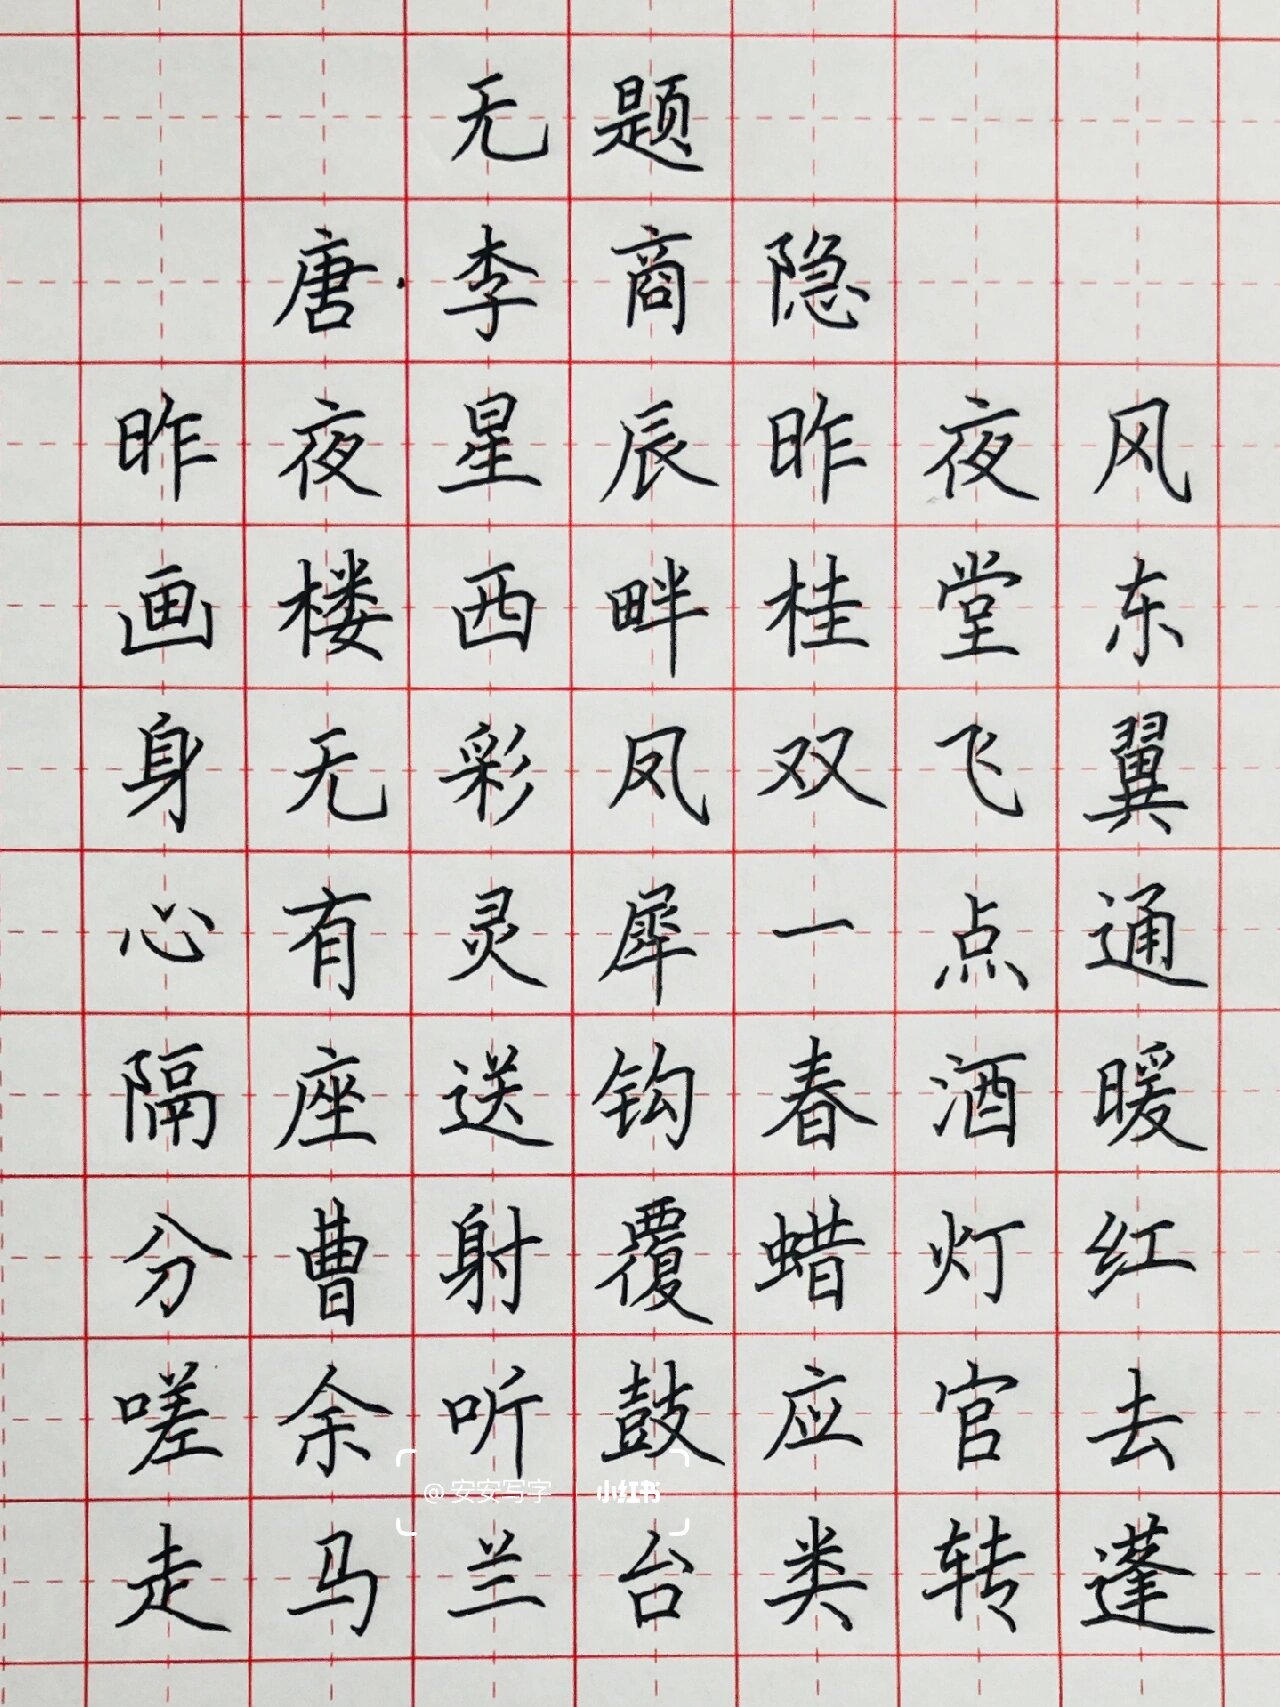 无题
唐·李商隐
昨夜星辰昨夜风
画楼西畔桂堂东
身无彩凤双飞翼
心有灵犀一点通
隔座送钩春酒暖
分曹射覆蜡灯红
嗟余听鼓应官去
@安安写字 小红书
走马兰台类转蓬